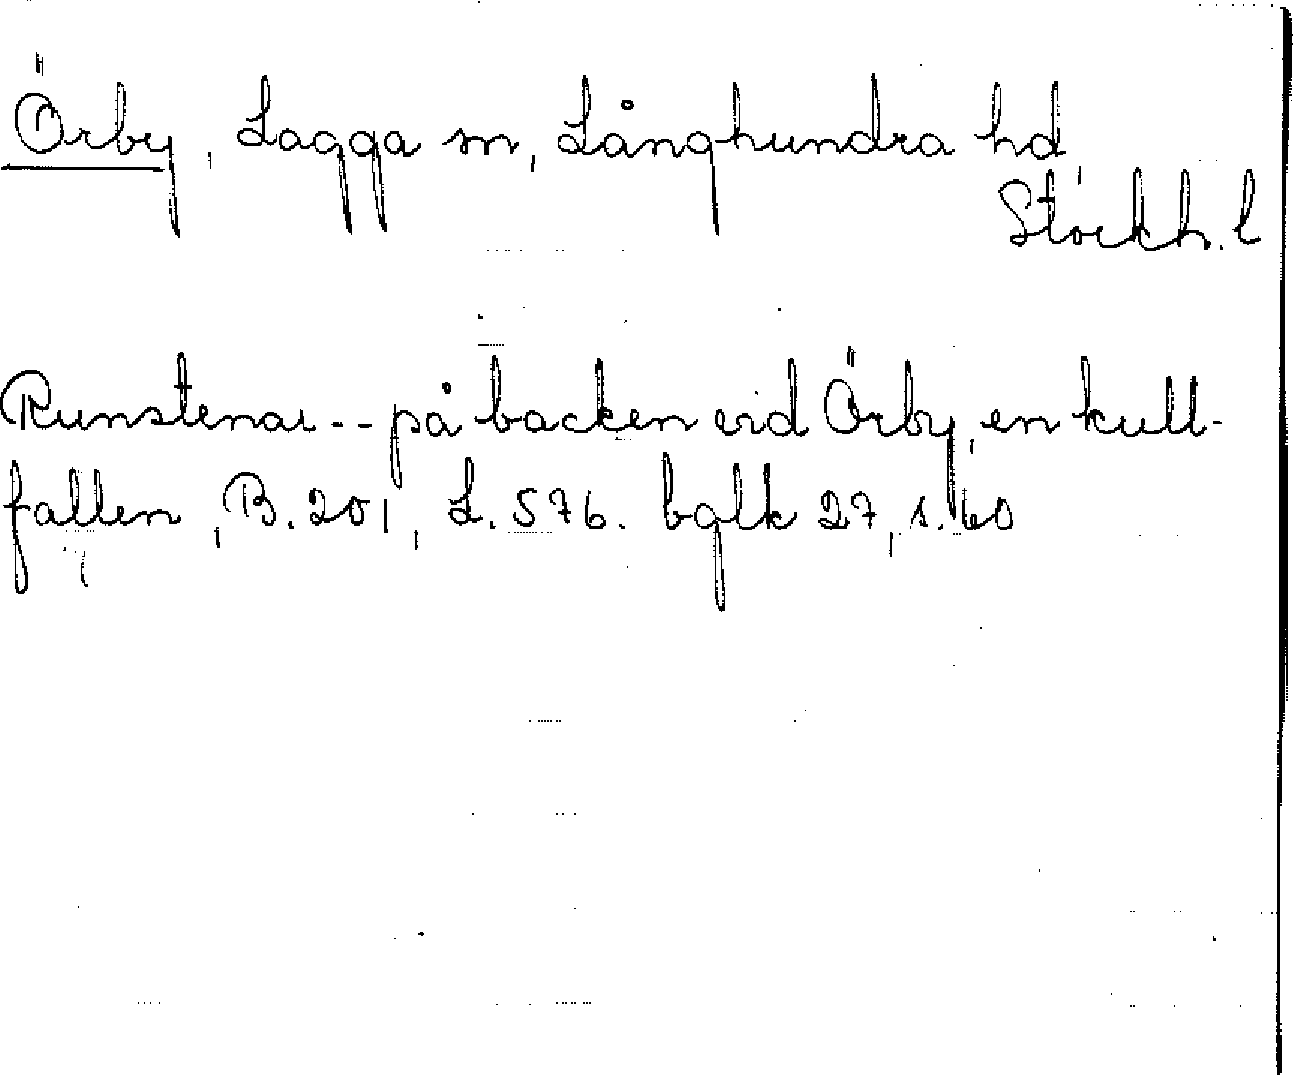 Örby, Lagga sn, Långhundra hd,
Stockh. l
Runstenar -- på backen vid Örby, en kull-
fallen, B. 201, L. 576. bglk 27, s. 60